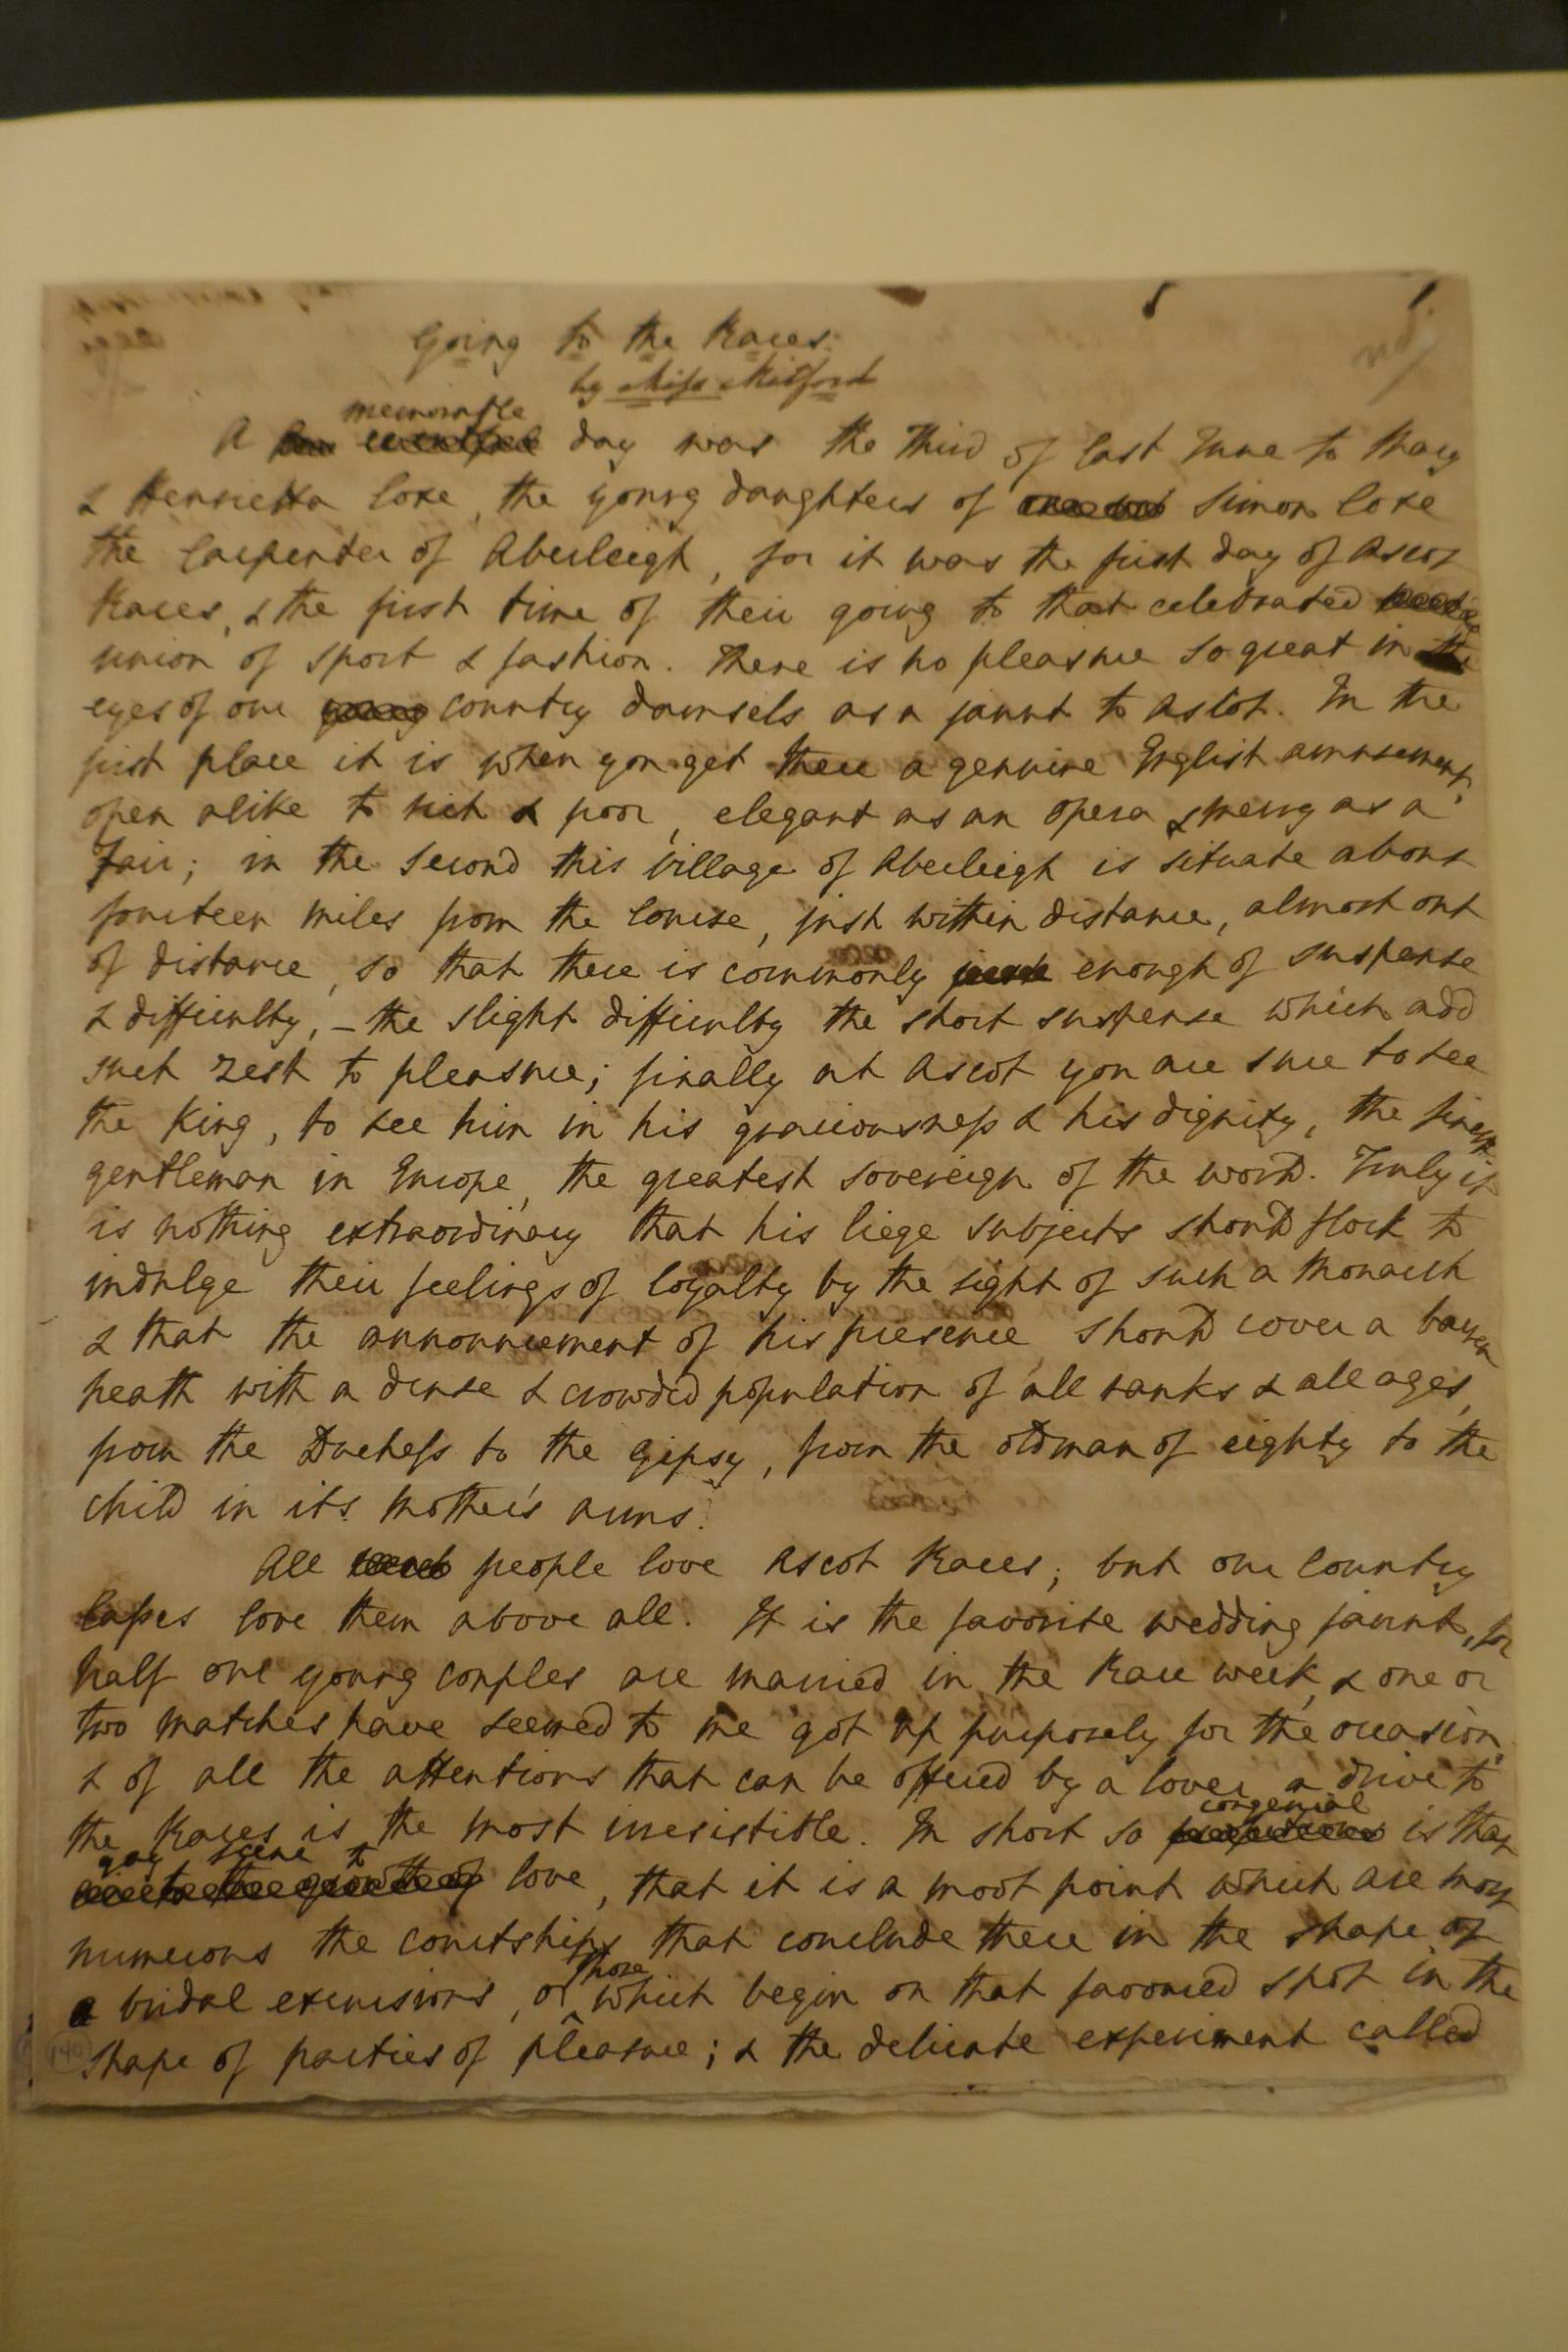 Going to the Races.
by Miss Mitford
memorable
A day was the Third of last June to Mary
& Henrietta Coxe, the young daughters of Simon Coxe
the Carpenter of Aberleigh, for it was the first day of Ascot
Races, & the first time of their going to that celebrated
union of sport & fashion. There is no pleasure so great in the
eyes of our young country damsels as a jaunt to Ascot. In the
first place it is when you get there a genuine English amusement,
open alike to rich & poor, elegant as an opera & merry as a
Fair; in the second this village of Aberleigh is situate about
fourteen miles from the Course, just within distance, almost out
of distance, so that there is commonly just enough of suspense
& difficulty, – the slight difficulty the short suspense which add
such zest to pleasure; finally at Ascot you are sure to see
the King, to see him in his graciousness & his dignity, the finest
gentleman in Europe, the greatest sovereign of the world. Truly it
is nothing extraordinary that his liege subjects should flock to
indulge their feelings of loyalty by the sight of such a Monarch
& that the announcement of his presence should cover a barren
heath with a dense & crowded population of all ranks & all ages,
from the Duchess to the Gipsy, from the old man of eighty to the
child in its mother's arms.
All people love Ascot Races; but our Country
lasses love them above all. It is the favorite wedding jaunt, for
half our young couples are married in the Race week, & one or
two matches have seemed to me got up purposely for the occasion.
& of all the attentions that can be offered by a lover a drive to
the Races is the most irresistible. In short so congenial is that
gay scene to
love, that it is a moot point which are most
numerous the courtships that conclude there in the shape of
bridal excursions, or those which begin on that favoured spot in the
shape of parties of pleasure; & the delicate experiment called